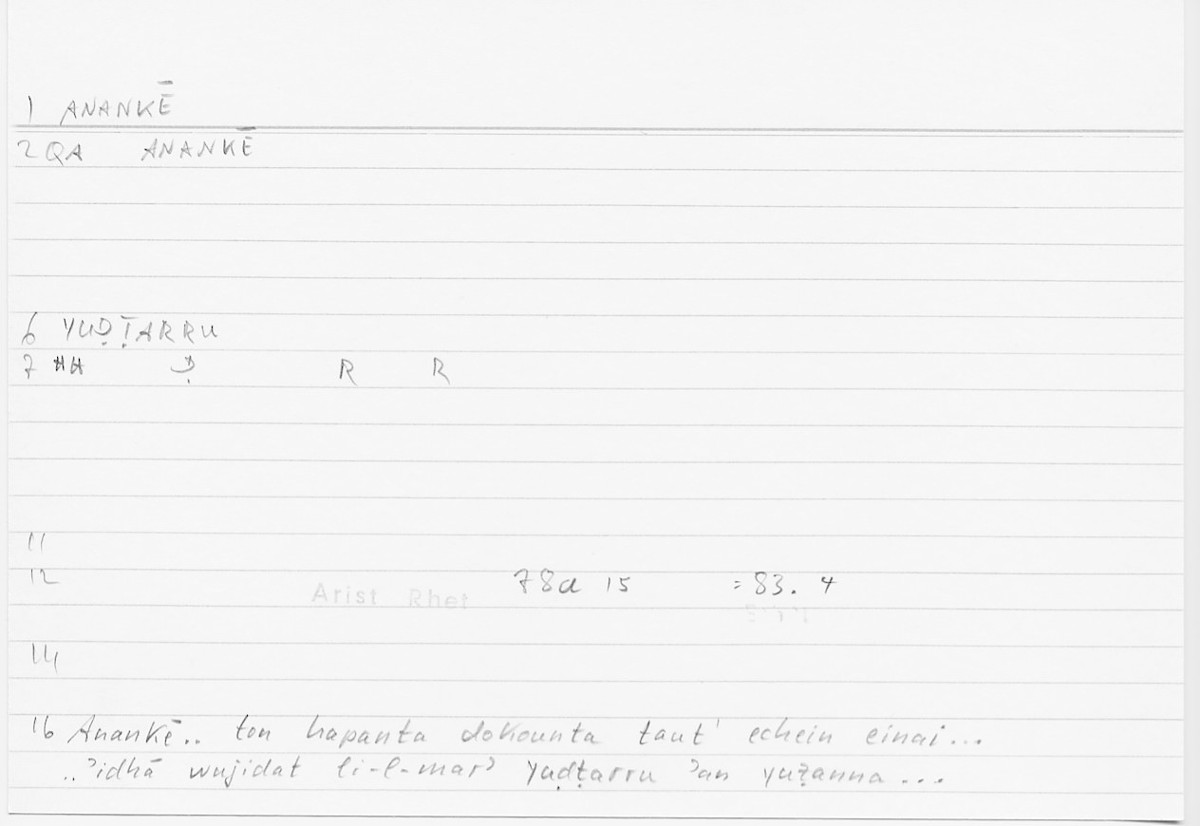 1 ANANKĒ
2 QA ANANKĒ
6 YUḌṬARRU
7 Ḍ R R
11
12 Arist Rhet 78a 15 = 83. 4
14
16 Anankē.. ton hapanta dokounta taut' echein einai...
..ʾidhā wujidat li-l-marʾ yuḍṭarru ʾan yuẓanna...